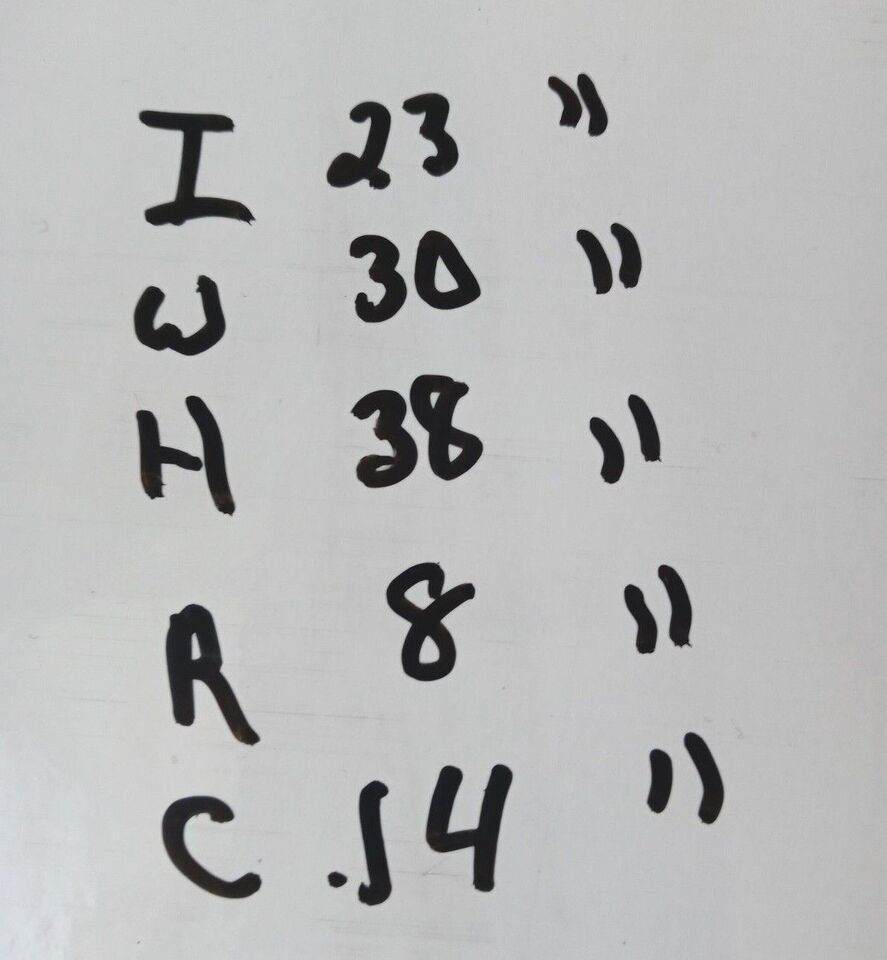 I 23 "
W 30 "
H 38 "
R 8 "
C .14 "